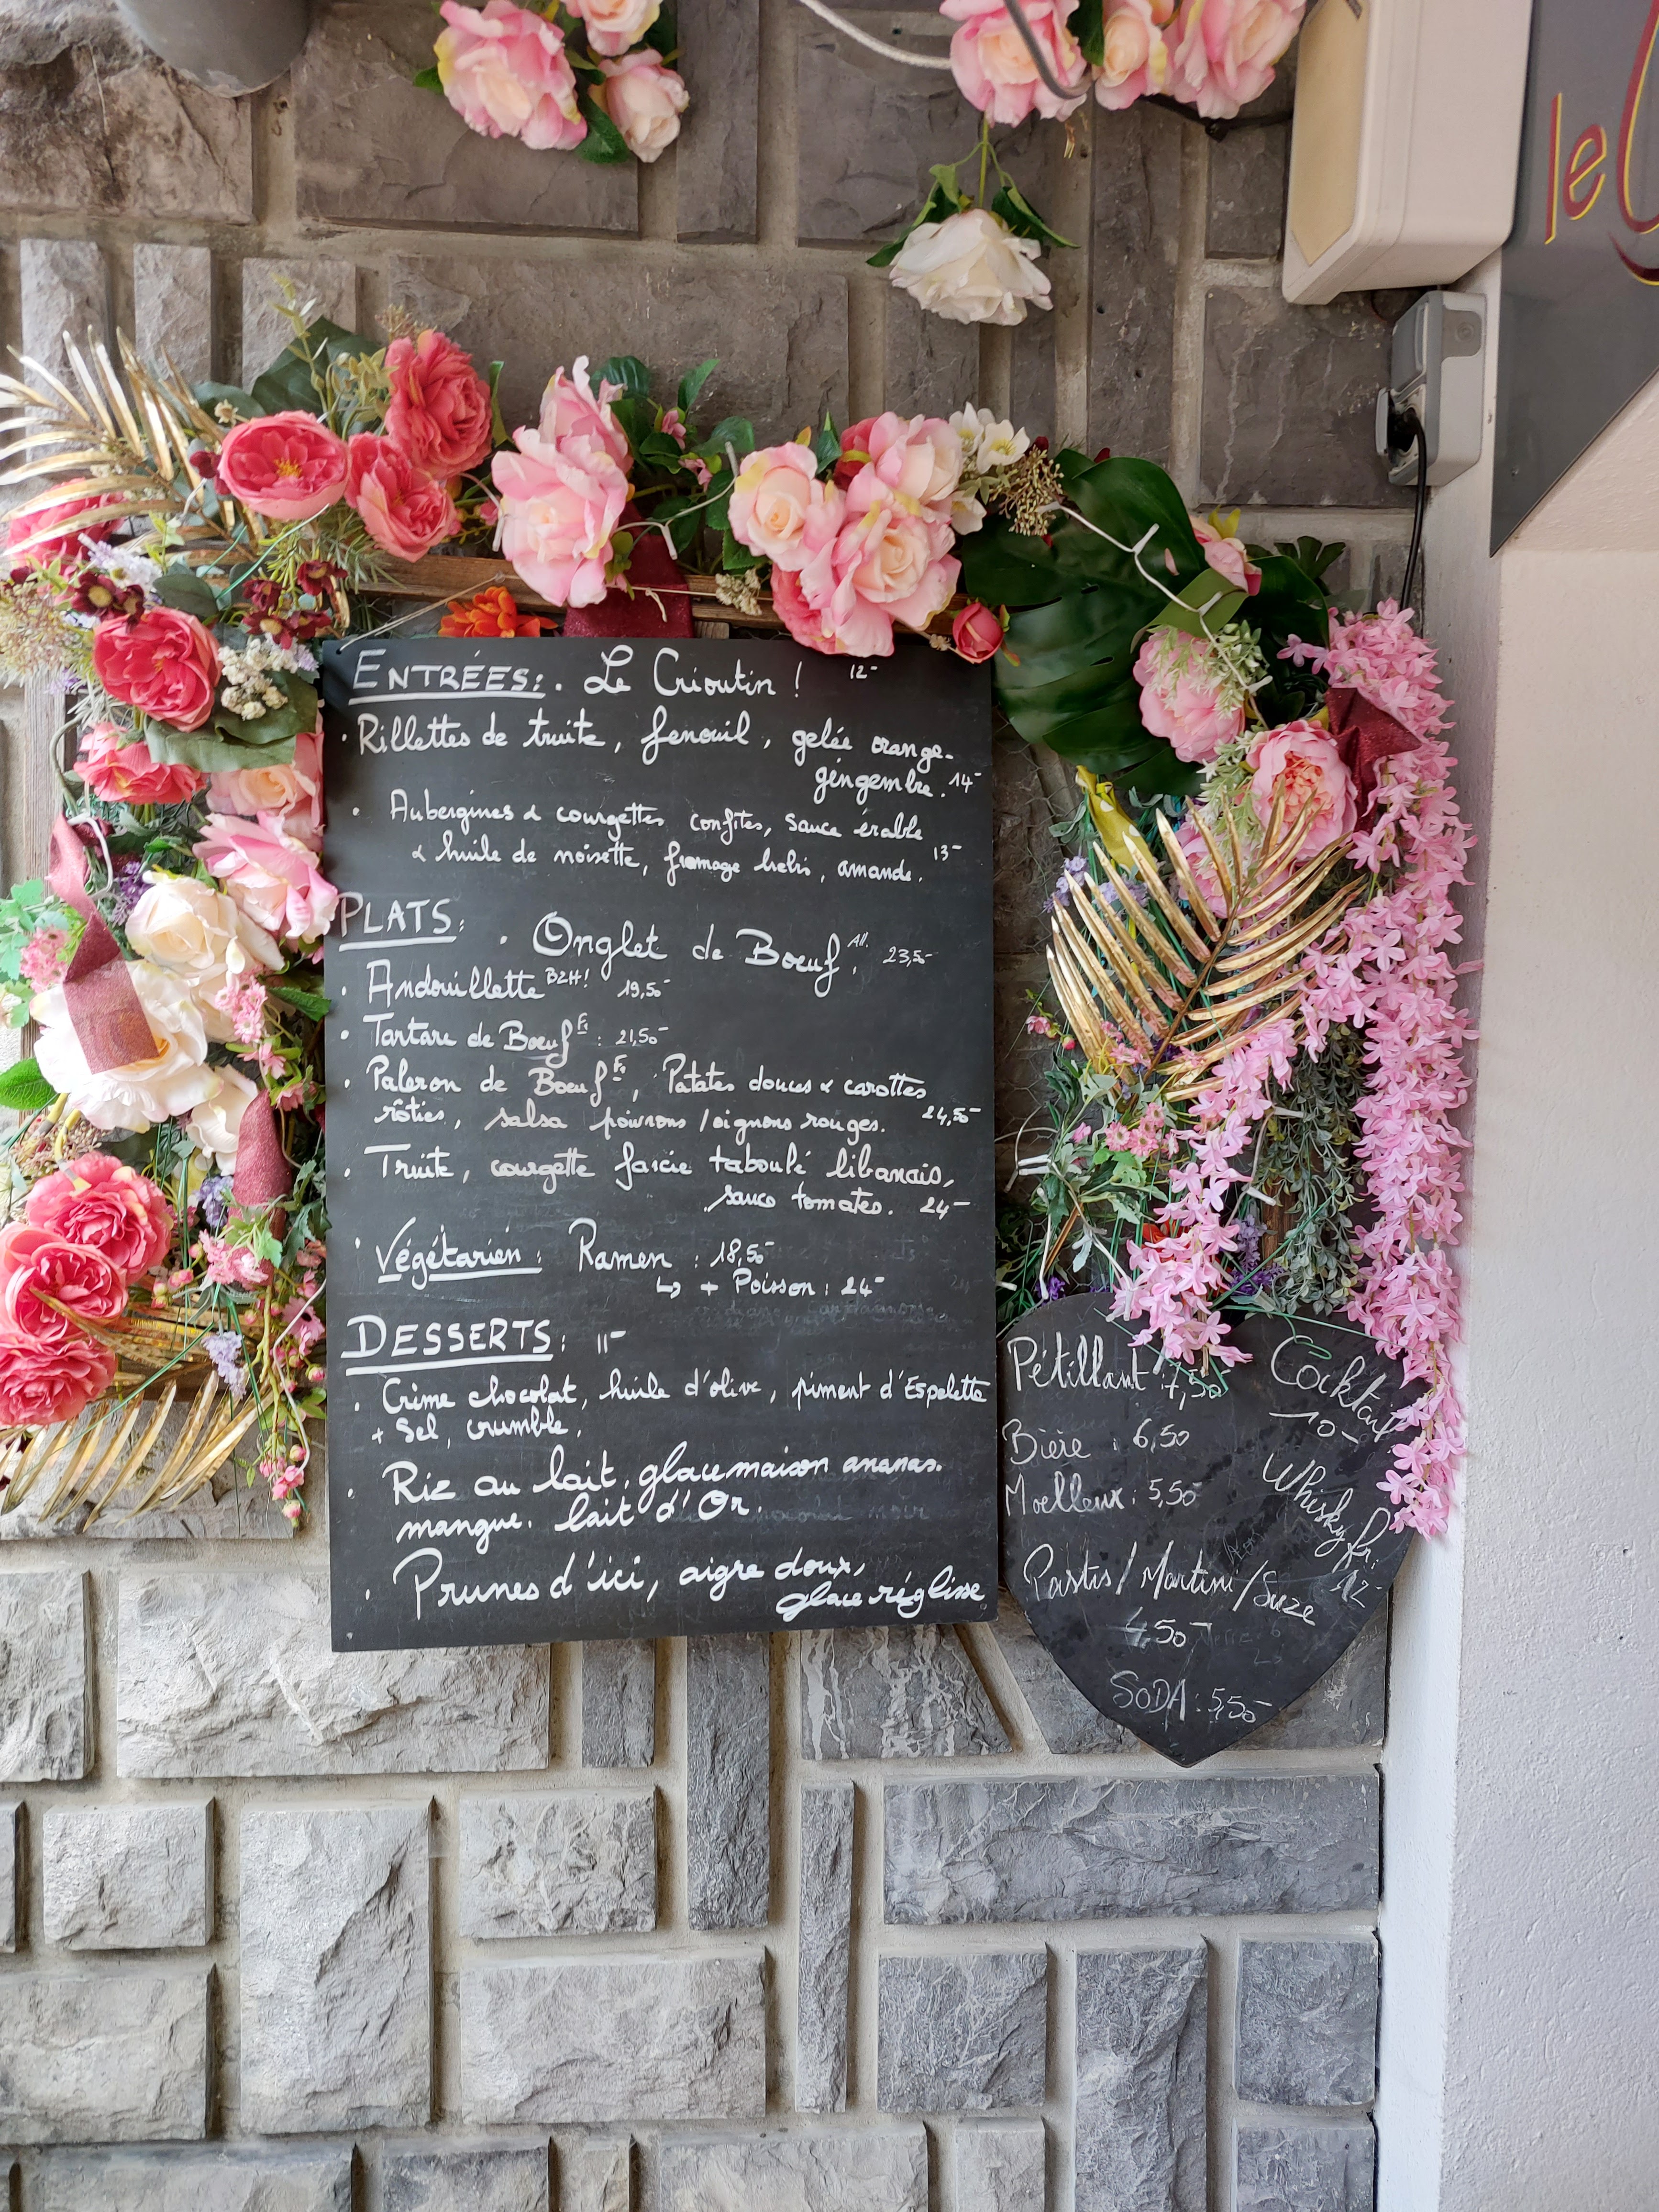 le
ENTRÉES: . Le Crioutin ! 12-
. Rillettes de truite, fenouil, gelée orange-
gingembre. 14-
. Aubergines & courgettes confites, sauce érable
& huile de noisette, fromage brebis, amande. 13-
PLATS: . Onglet de Boeuf All. 23,50-
. Andouillette BZH! 19,50-
. Tartare de Boeuf Fr : 21,50-
. Paleron de Boeuf Fr, Patates douces & carottes
rôties, salsa poivrons / oignons rouges. 24,50-
. Truite, courgette farcie taboulé libanais,
sauce tomates. 24-
. Végétarien : Ramen : 18,50-
↳ + Poisson : 24-
DESSERTS: 11-
. Crème chocolat, huile d'olive, piment d'Espelette
+ Sel, crumble.
. Riz au lait, glace maison ananas.
mangue. lait d'Or.
. Prunes d'ici, aigre doux,
glace réglisse
Pétillant 7,50
Bière : 6,50
Moelleux : 5,50-
Cocktail
10-
Whisky fr.
12-
Pastis / Martini / Suze
4,50-
SODA : 5,50-